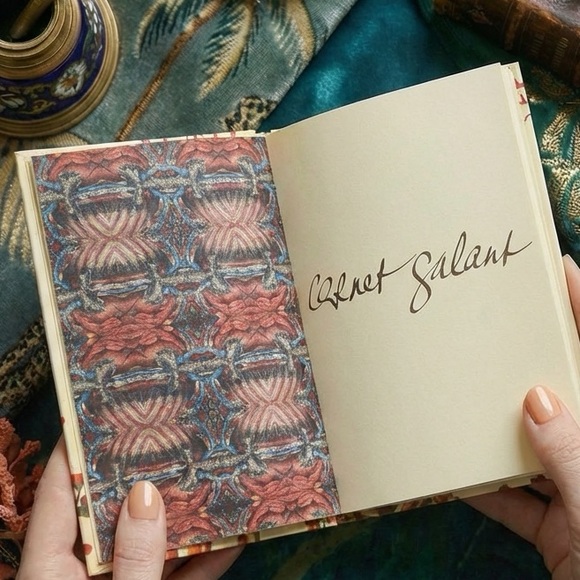 Carnet Galant